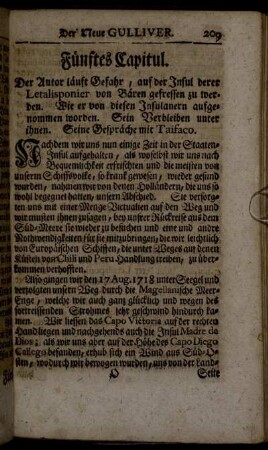 Der Neue GULLIVER. 209
Fünftes Capitul.
Der Autor läuft Gefahr, auf der Insul derer
Letalisponier von Bären gefressen zu wer-
den. Wie er von diesen Insulanern aufge-
nommen worden. Sein Verbleiben unter
ihnen. Seine Gespräche mit Taifaco.
Nachdem wir uns nun einige Zeit in der Staaten-
Insul aufgehalten, als woselbst wir uns nach
Bequemlichkeit erfrischten und die meisten von
unserm Schiffsvolke, so krank gewesen, wieder gesund
wurden, nahmen wir von denen Holländern, die uns so
wohl begegnet hatten, unsern Abschied. Sie versorg-
ten uns mit einer Menge Victualien auf den Weg und
wir musten ihnen zusagen, bey unser Rückreise aus dem
Süd-Meere sie wieder zu besuchen und eine und andre
Nothwendigkeiten für sie mitzubringen, die wir leichtlich
von Europäischen Schiffen, die unter Weges auf denen
Küsten von Chili und Peru Handlung treiben, zu über-
kommen verhofften.
Also gingen wir den 17 Aug. 1718 unter Seegel und
verfolgten unsern Weg durch die Magellanische Meer-
Enge, welche wir auch ganz glücklich und wegen des
fortreissenden Strohmes sehr geschwind hindurch ka-
men. Wir liessen das Capo Victoria auf der rechten
Hand liegen und nachgehends auch die Insul Madre de
Dios; als wir uns aber auf der Höhe des Capo Diego
Gallego befanden, erhub sich ein Wind aus Süd-O-
sten, wodurch wir bewogen wurden, uns von der Land-
O Seite